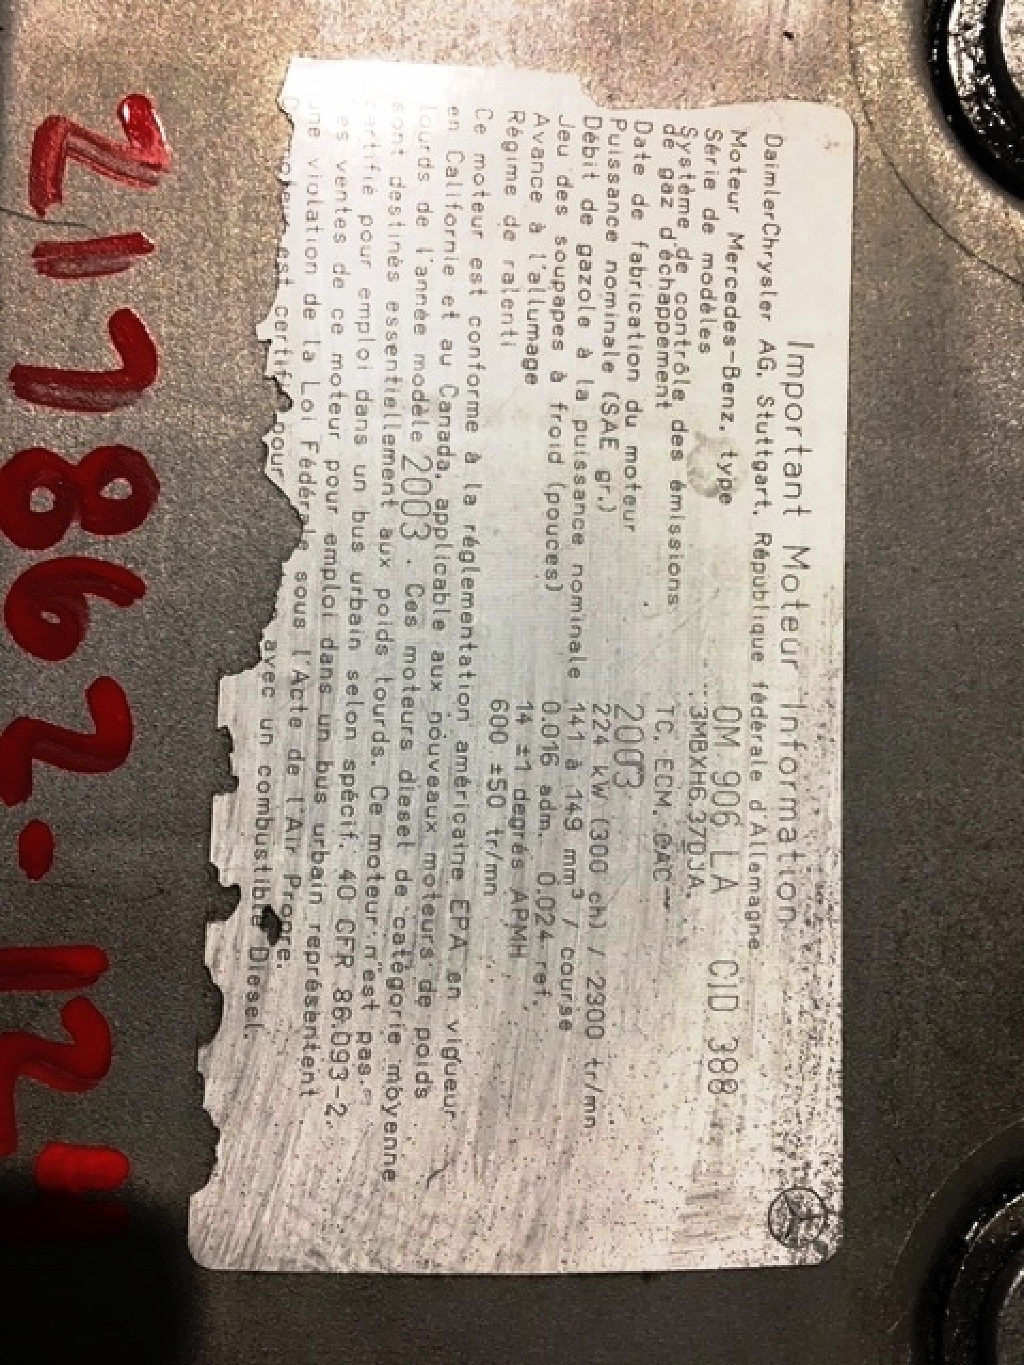 Important Moteur Information
DaimlerChrysler AG, Stuttgart, République fédérale d'Allemagne
Moteur Mercedes-Benz, type OM 906 LA CID 388
Série de modèles 3MBXH6.37DJA.
Système de contrôle des émissions
de gaz d'échappement TC, ECM, CAC
Date de fabrication du moteur 2003
Puissance nominale (SAE gr.) 224 kW (300 ch) / 2300 tr/mn
Débit de gazole à la puissance nominale 141 à 149 mm³ / course
Jeu des soupapes à froid (pouces) 0.016 adm. 0.024 ref.
Avance à l'allumage 14 ±1 degrés APMH
Régime de ralenti 600 ±50 tr/mn
Ce moteur est conforme à la réglementation américaine EPA en vigueur
en Californie et au Canada, applicable aux nouveaux moteurs de poids
lourds de l'année modèle 2003. Ces moteurs diesel de catégorie moyenne
sont destinés essentiellement aux poids lourds. Ce moteur n'est pas
certifié pour emploi dans un bus urbain selon spécif. 40 CFR 86.093-2.
es ventes de ce moteur pour emploi dans un bus urbain représentent
une violation de la Loi Fédérale sous l'Acte de l'Air Propre.
est certifié pour avec un combustible Diesel.
217862-124